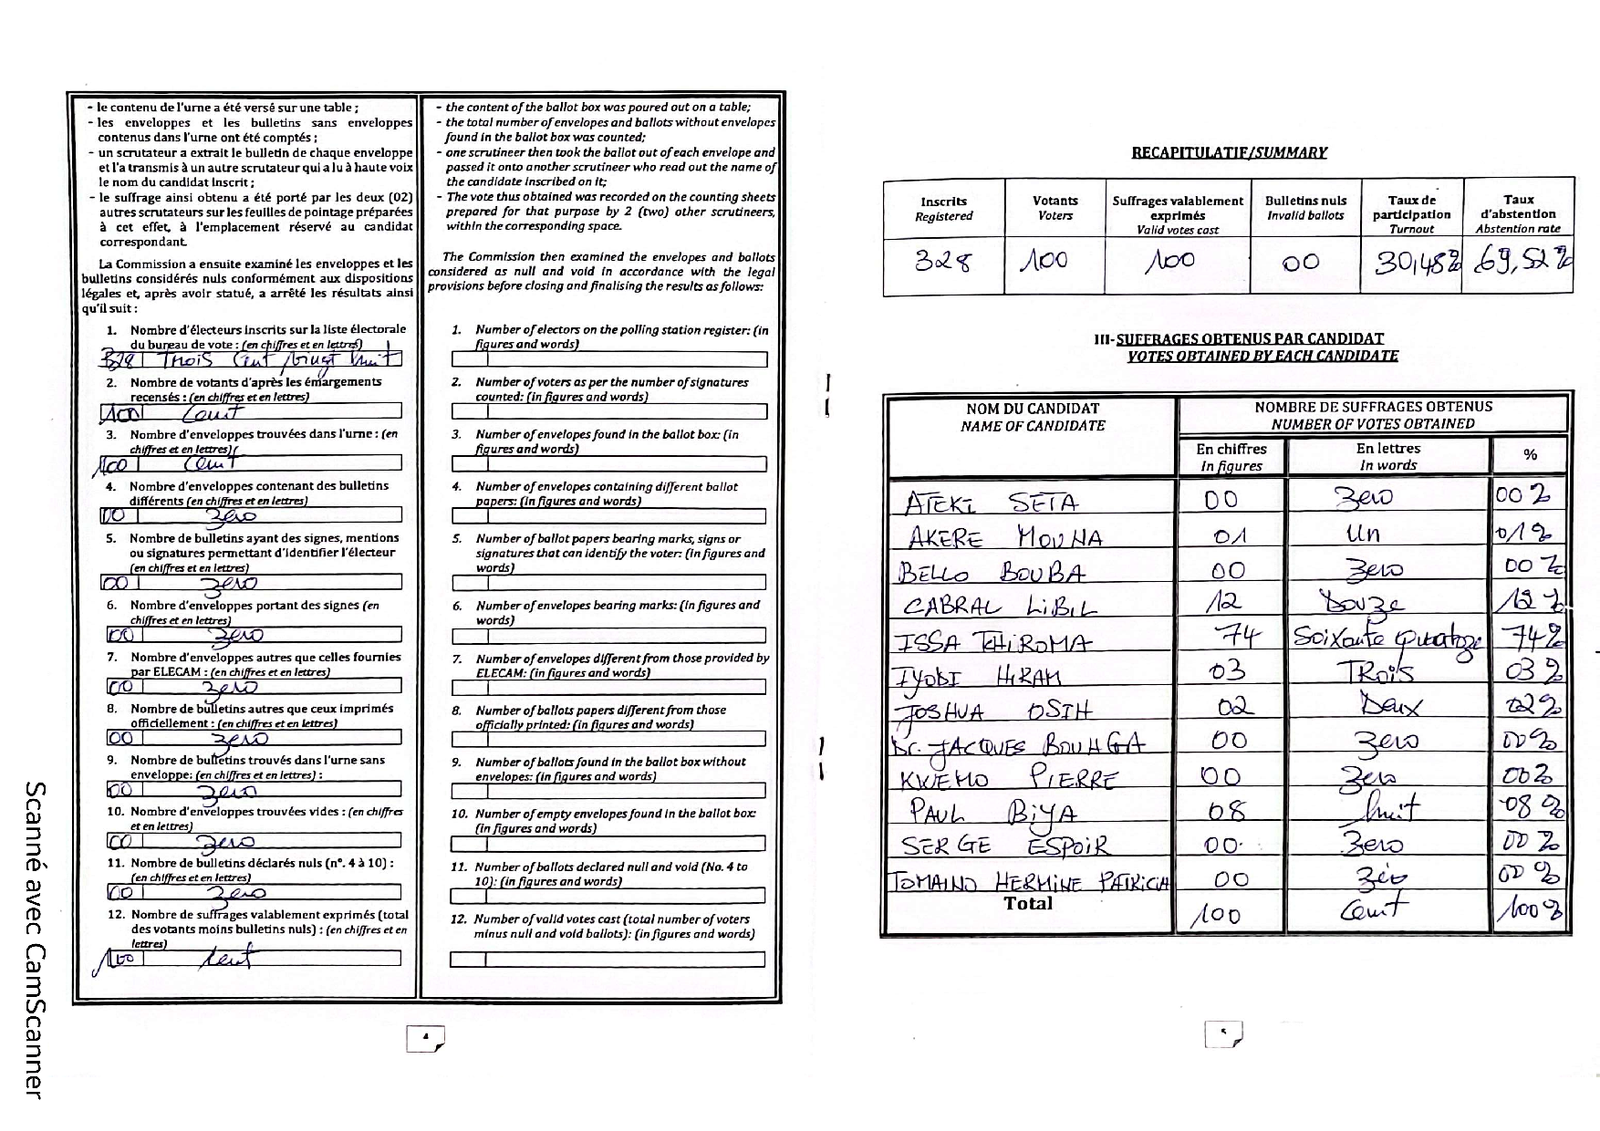 - le contenu de l'urne a été versé sur une table ;
- les enveloppes et les bulletins sans enveloppes
contenus dans l'urne ont été comptés ;
- un scrutateur a extrait le bulletin de chaque enveloppe
et l'a transmis à un autre scrutateur qui a lu à haute voix
le nom du candidat inscrit ;
- le suffrage ainsi obtenu a été porté par les deux (02)
autres scrutateurs sur les feuilles de pointage préparées
à cet effet, à l'emplacement réservé au candidat
correspondant.
La Commission a ensuite examiné les enveloppes et les
bulletins considérés nuls conformément aux dispositions
légales et, après avoir statué, a arrêté les résultats ainsi
qu'il suit :
1. Nombre d'électeurs inscrits sur la liste électorale
du bureau de vote : (en chiffres et en lettres)
328 Trois Cent vingt huit
2. Nombre de votants d'après les émargements
recensés : (en chiffres et en lettres)
100 Cent
3. Nombre d'enveloppes trouvées dans l'urne : (en
chiffres et en lettres)
100 Cent
4. Nombre d'enveloppes contenant des bulletins
différents (en chiffres et en lettres)
00 zero
5. Nombre de bulletins ayant des signes, mentions
ou signatures permettant d'identifier l'électeur
(en chiffres et en lettres)
00 zero
6. Nombre d'enveloppes portant des signes (en
chiffres et en lettres)
00 zero
7. Nombre d'enveloppes autres que celles fournies
par ELECAM : (en chiffres et en lettres)
00 zero
8. Nombre de bulletins autres que ceux imprimés
officiellement : (en chiffres et en lettres)
00 zero
9. Nombre de bulletins trouvés dans l'urne sans
enveloppe: (en chiffres et en lettres) :
00 zero
10. Nombre d'enveloppes trouvées vides : (en chiffres
et en lettres)
00 zero
11. Nombre de bulletins déclarés nuls (n°. 4 à 10) :
(en chiffres et en lettres)
00 zero
12. Nombre de suffrages valablement exprimés (total
des votants moins bulletins nuls) : (en chiffres et en
lettres)
100 Cent
- the content of the ballot box was poured out on a table;
- the total number of envelopes and ballots without envelopes
found in the ballot box was counted;
- one scrutineer then took the ballot out of each envelope and
passed it onto another scrutineer who read out the name of
the candidate inscribed on it;
- The vote thus obtained was recorded on the counting sheets
prepared for that purpose by 2 (two) other scrutineers,
within the corresponding space.
The Commission then examined the envelopes and ballots
considered as null and void in accordance with the legal
provisions before closing and finalising the results as follows:
1. Number of electors on the polling station register: (in
figures and words)
2. Number of voters as per the number of signatures
counted: (in figures and words)
3. Number of envelopes found in the ballot box: (in
figures and words)
4. Number of envelopes containing different ballot
papers: (in figures and words)
5. Number of ballot papers bearing marks, signs or
signatures that can identify the voter: (in figures and
words)
6. Number of envelopes bearing marks: (in figures and
words)
7. Number of envelopes different from those provided by
ELECAM: (in figures and words)
8. Number of ballots papers different from those
officially printed: (in figures and words)
9. Number of ballots found in the ballot box without
envelopes: (in figures and words)
10. Number of empty envelopes found in the ballot box:
(in figures and words)
11. Number of ballots declared null and void (No. 4 to
10): (in figures and words)
12. Number of valid votes cast (total number of voters
minus null and void ballots): (in figures and words)
4
Scanné avec CamScanner
RECAPITULATIF/SUMMARY
Inscrits Votants Suffrages valablement Bulletins nuls Taux de Taux
Registered Voters exprimés Invalid ballots participation d'abstention
Valid votes cast Turnout Abstention rate
328 100 100 00 30,48% 69,52%
III- SUFFRAGES OBTENUS PAR CANDIDAT
VOTES OBTAINED BY EACH CANDIDATE
NOM DU CANDIDAT NOMBRE DE SUFFRAGES OBTENUS
NAME OF CANDIDATE NUMBER OF VOTES OBTAINED
En chiffres En lettres %
In figures In words
ATEKI SETA 00 zero 00%
AKERE MOUNA 01 Un 01%
BELLO BOUBA 00 zero 00%
CABRAL LIBIL 12 Douze 12%
ISSA TCHIROMA 74 Soixante quatorze 74%
IYODI HIRAM 03 TROIS 03%
JOSHUA OSIH 02 Deux 02%
Dr. JACQUES BOUHGA 00 zero 00%
KWEMO PIERRE 00 zero 00%
PAUL BIYA 08 huit 08%
SERGE ESPOIR 00 zero 00%
TOMAINO HERMINE PATRICIA 00 zero 00%
Total 100 Cent 100%
5